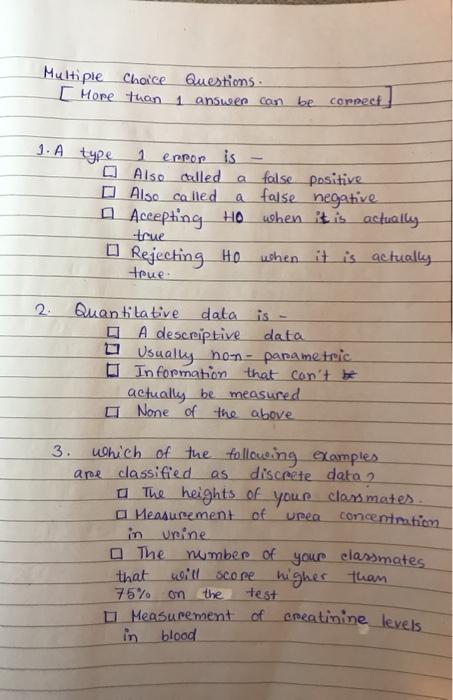 Multiple Choice Questions.
[ More than 1 answer can be correct ]
1. A type 1 error is -
□ Also called a false positive
□ Also called a false negative
□ Accepting H0 when it is actually
true
□ Rejecting H0 when it is actually
true.
2. Quantitative data is -
□ A descriptive data
□ Usually non-parametric
□ Information that can't be
actually be measured
□ None of the above
3. which of the following examples
are classified as discrete data?
□ The heights of your classmates.
□ Measurement of urea concentration
in urine
□ The number of your classmates
that will score higher than
75% on the test
□ Measurement of creatinine levels
in blood